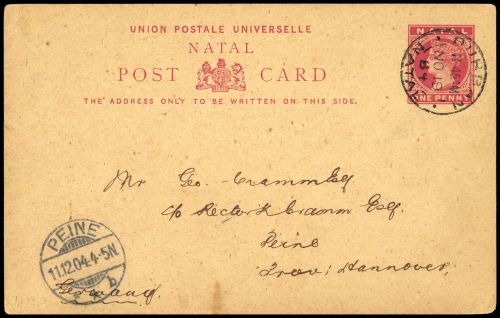 UNION POSTALE UNIVERSELLE
NATAL
POST CARD
THE ADDRESS ONLY TO BE WRITTEN ON THIS SIDE.
NATAL
ONE PENNY
DURBAN
NATAL
NO 19
04
Mr Geo. Cramm Esq
c/o Rector H Cramm Esq.
Peine
Prov: Hannover,
Germany.
PEINE
11.12.04.4-5N
b